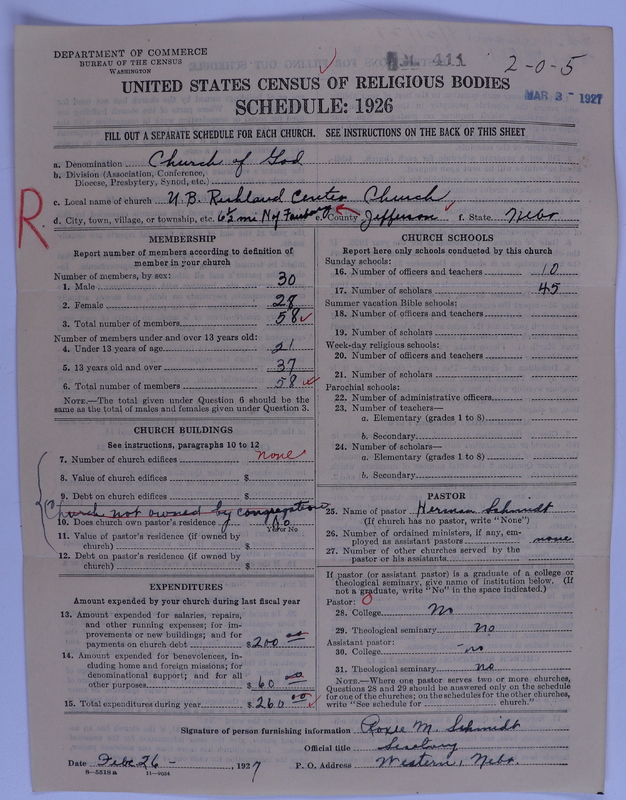 DEPARTMENT OF COMMERCE
BUREAU OF THE CENSUS
WASHINGTON
411
2-0-5
UNITED STATES CENSUS OF RELIGIOUS BODIES
MAR 3 - 1927
SCHEDULE: 1926
FILL OUT A SEPARATE SCHEDULE FOR EACH CHURCH. SEE INSTRUCTIONS ON THE BACK OF THIS SHEET
a. Denomination Church of God
b. Division (Association, Conference,
Diocese, Presbytery, Synod, etc.)
c. Local name of church U.B. Richland Center Church
R.
d. City, town, village, or township, etc. 6½ mi N of Fairbury e. County Jefferson f. State Nebr
MEMBERSHIP
Report number of members according to definition of
member in your church
Number of members, by sex:
1. Male 30
2. Female 28
3. Total number of members 58
Number of members under and over 13 years old:
4. Under 13 years of age 21
5. 13 years old and over 37
6. Total number of members 58
NOTE.—The total given under Question 6 should be the
same as the total of males and females given under Question 3.
CHURCH BUILDINGS
See instructions, paragraphs 10 to 12
7. Number of church edifices none
8. Value of church edifices $
9. Debt on church edifices $
Church not owned by congregation
10. Does church own pastor's residence? No
Yes or No
11. Value of pastor's residence (if owned by
church) $
12. Debt on pastor's residence (if owned by
church) $
EXPENDITURES
Amount expended by your church during last fiscal year
13. Amount expended for salaries, repairs,
and other running expenses; for im-
provements or new buildings; and for
payments on church debt $200 00
14. Amount expended for benevolences, in-
cluding home and foreign missions; for
denominational support; and for all
other purposes $60 00
15. Total expenditures during year $260 00
CHURCH SCHOOLS
Report here only schools conducted by this church
Sunday schools:
16. Number of officers and teachers 10
17. Number of scholars 45
Summer vacation Bible schools:
18. Number of officers and teachers
19. Number of scholars
Week-day religious schools:
20. Number of officers and teachers
21. Number of scholars
Parochial schools:
22. Number of administrative officers
23. Number of teachers—
a. Elementary (grades 1 to 8)
b. Secondary
24. Number of scholars—
a. Elementary (grades 1 to 8)
b. Secondary
PASTOR
25. Name of pastor Herman Schmidt
(If church has no pastor, write "None")
26. Number of ordained ministers, if any, em-
ployed as assistant pastors none
27. Number of other churches served by the
pastor or his assistants
If pastor (or assistant pastor) is a graduate of a college or
theological seminary, give name of institution below. (If
not a graduate, write "No" in the space indicated.)
Pastor: 0
28. College No
29. Theological seminary No
Assistant pastor:
30. College no
31. Theological seminary no
NOTE.—Where one pastor serves two or more churches,
Questions 28 and 29 should be answered only on the schedule
for one of the churches; on the schedules for the other churches,
write "See schedule for church."
Signature of person furnishing information Roxie M. Schmidt
Official title
Date Feb. 26 - , 1927
P. O. Address Western, Nebr.
8-5518a 11-9034